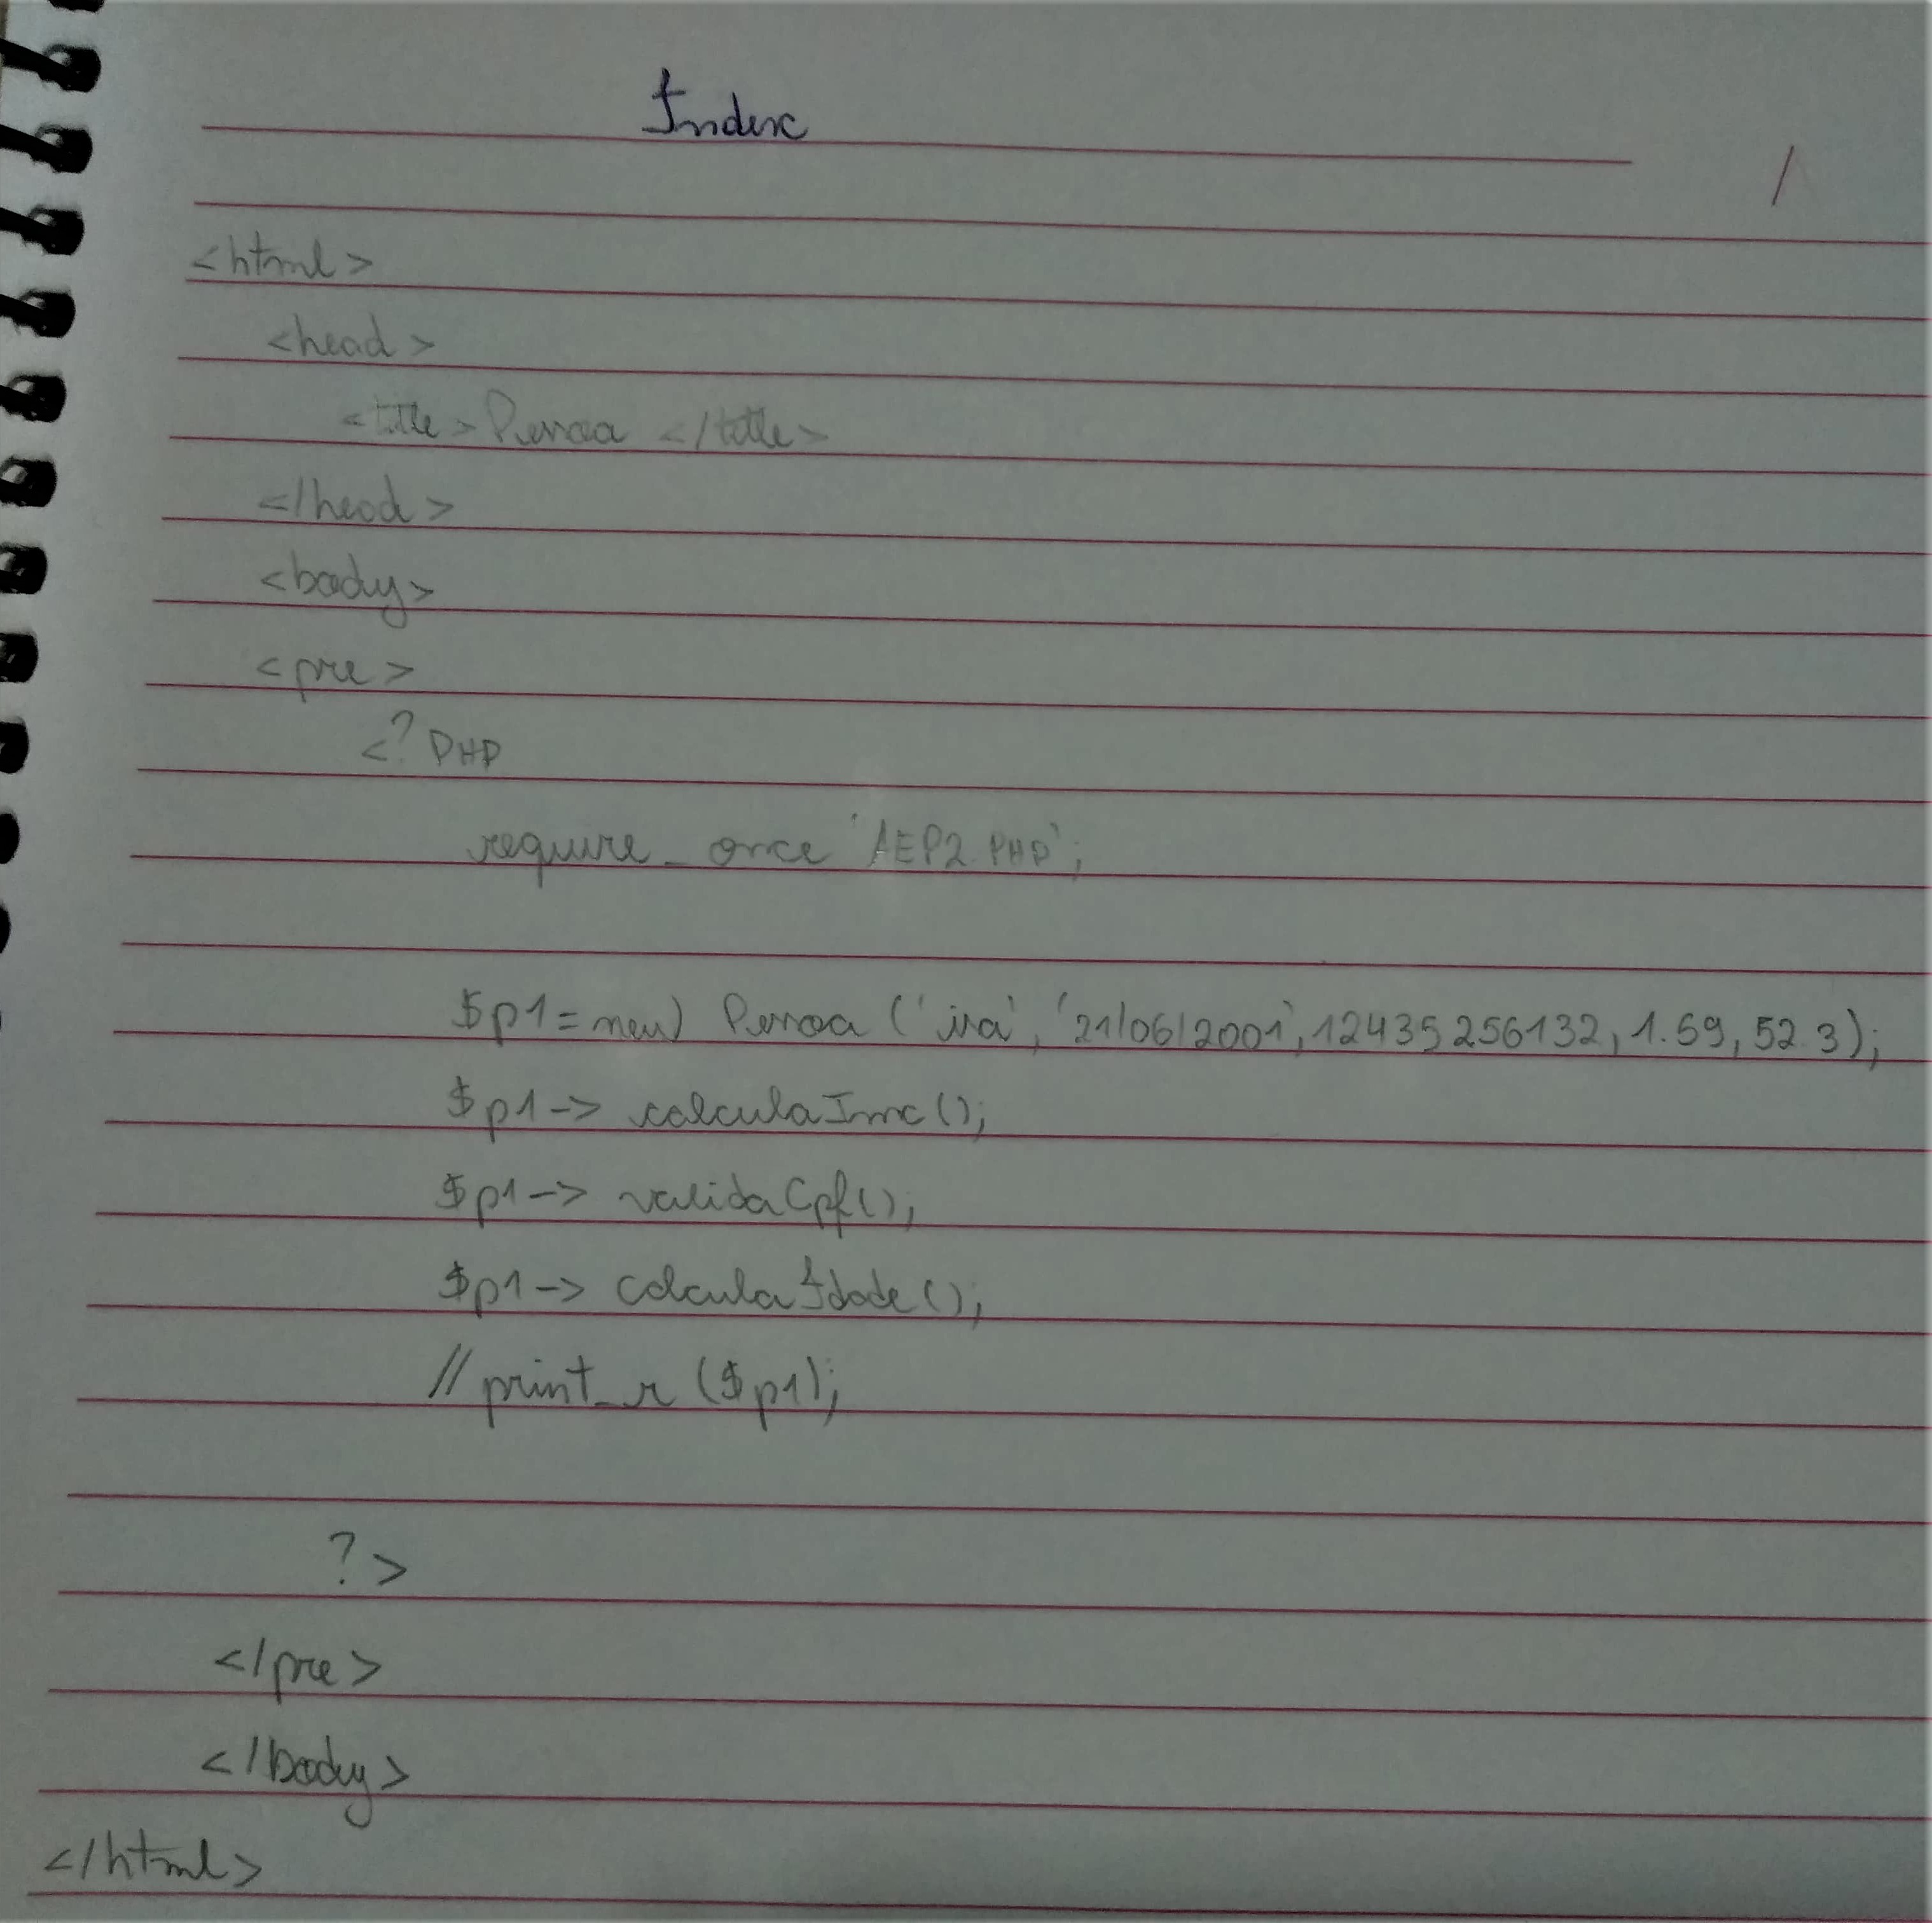 Index
<html>
<head>
<title> Pessoa </title>
</head>
<body>
<pre>
<? PHP
require_once 'AEP2.PHP';
$p1 = new Pessoa ('isa', '21/06/2001', 12435256132, 1.59, 52.3);
$p1 -> calculaImc();
$p1 -> validaCpf();
$p1 -> calculaIdade();
// print_r ($p1);
? >
</pre>
</body>
</html>